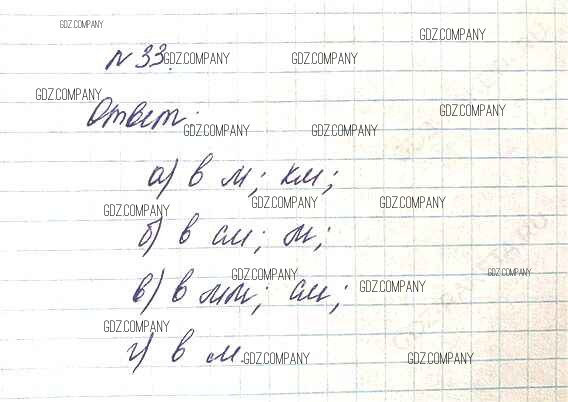 GDZ.COMPANY
GDZ.COMPANY
№ 33.
GDZ.COMPANY
GDZ.COMPANY
GDZ.COMPANY
Ответ:
GDZ.COMPANY
GDZ.COMPANY
GDZ.COMPANY
а) в м; км;
GDZ.COMPANY
GDZ.COMPANY
GDZ.COMPANY
б) в см; м;
GDZ.COMPANY
GDZ.COMPANY
в) в мм; см;
GDZ.COMPANY
GDZ.COMPANY
г) в м.
GDZ.COMPANY
GDZ.COMPANY